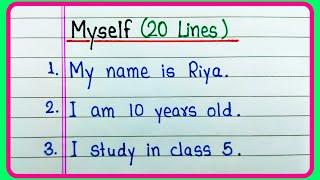 Myself (20 Lines)
1. My name is Riya.
2. I am 10 years old.
3. I study in class 5.